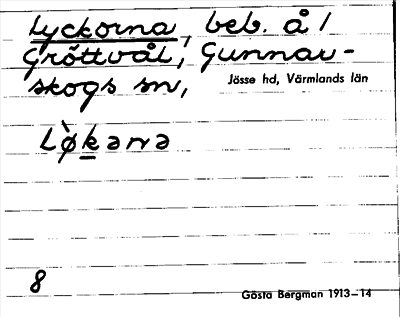 Lyckorna, beb. å /
Gröttvål, Gunnar-
skogs sn,
Jösse hd, Värmlands län
Lø̀kana
8
Gösta Bergman 1913–14